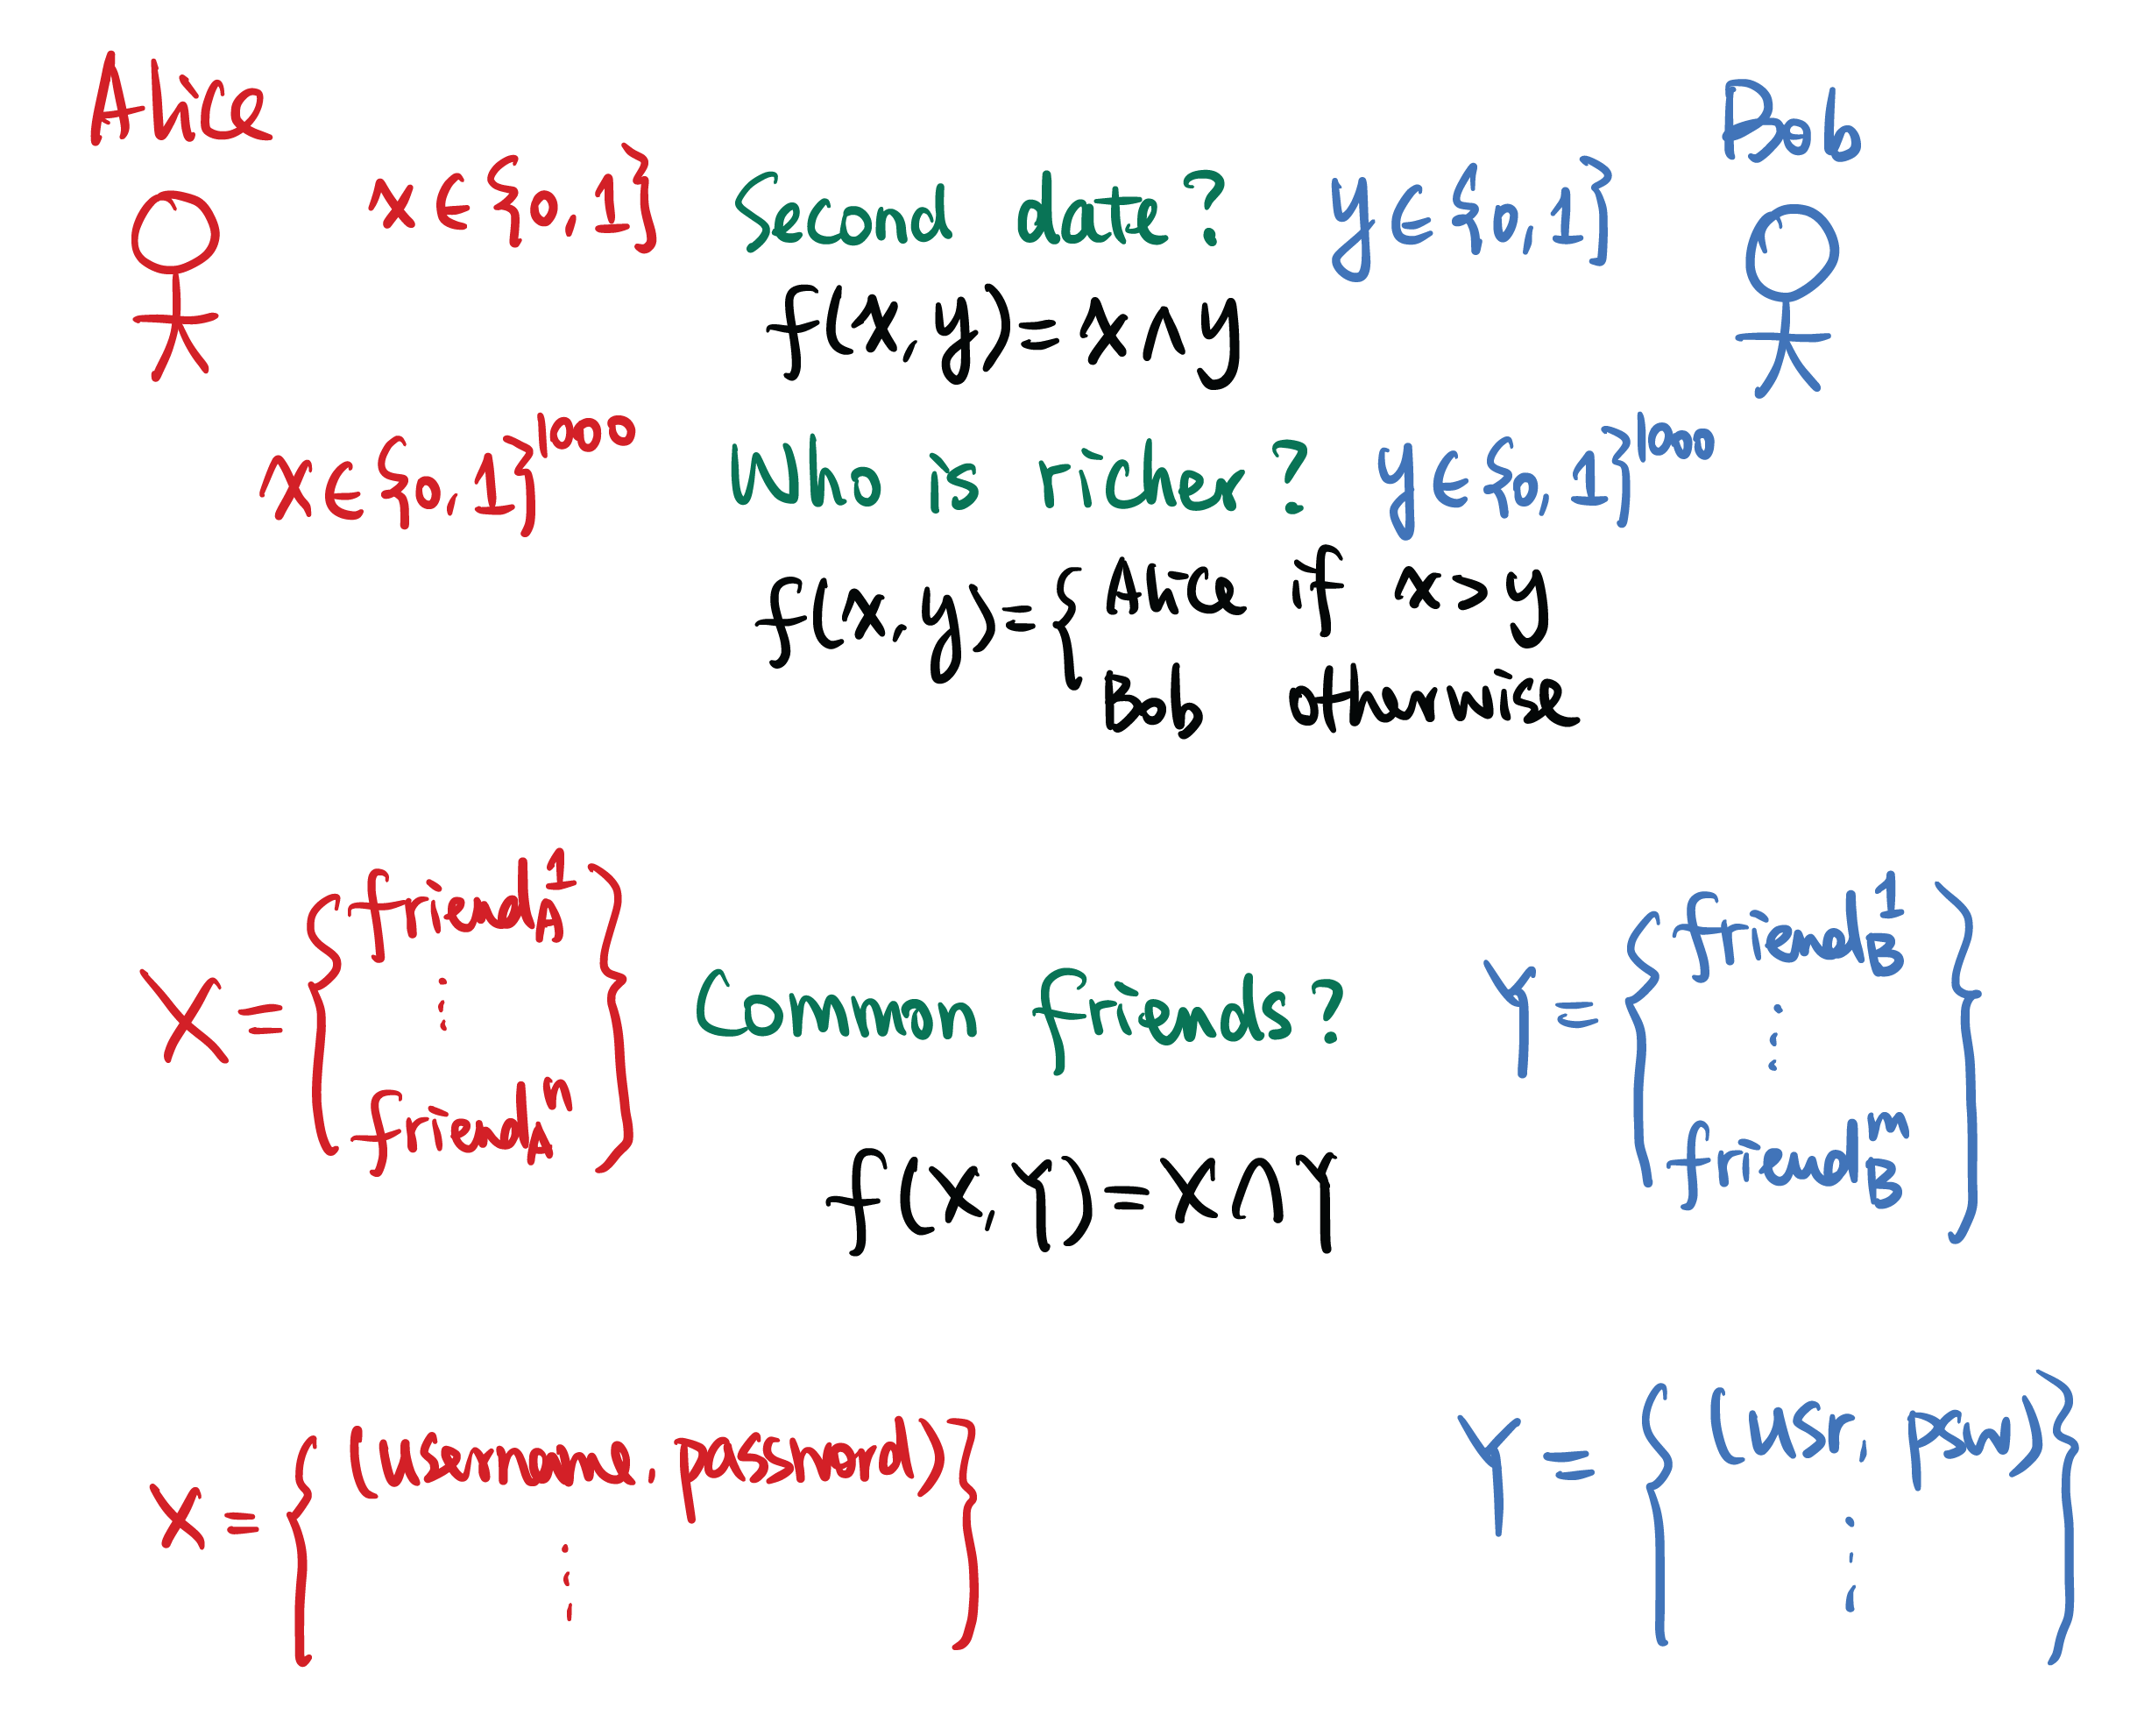 Alice Bob
x ∈ {0,1} Second date? y ∈ {0,1}
f(x,y) = x ∧ y
x ∈ {0,1}^1000 Who is richer? y ∈ {0,1}^1000
f(x,y) = { Alice if x > y
Bob otherwise
friend_A^1 friend_B^1
X = { ⋮ } Common friends? Y = { ⋮ }
friend_A^n friend_B^m
f(X,Y) = X ∩ Y
X = { (username, password) } Y = { (usr, psw) }
⋮ ⋮